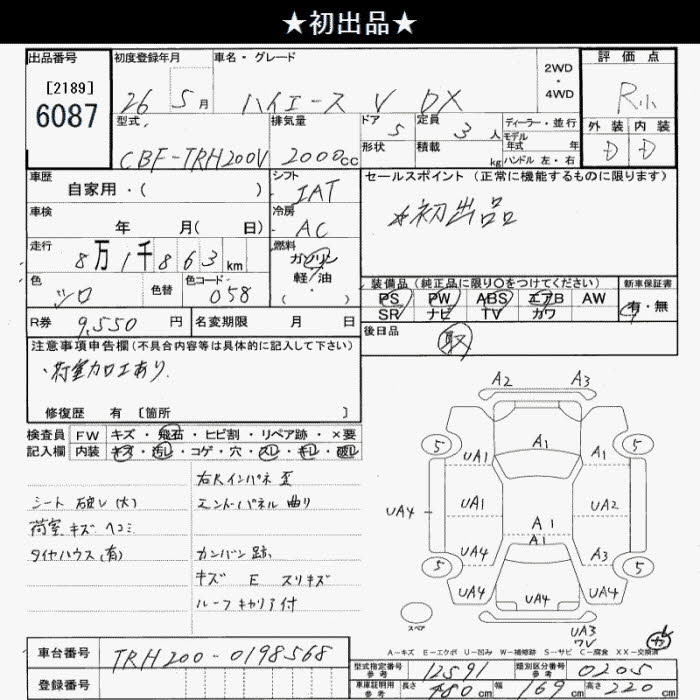 ★初出品★
出品番号 初度登録年月 車名・グレード 2WD・4WD 評価点
[2189]
6087
26 5月 ハイエース V DX R小
型式 排気量 ドア 5 定員 3人 ディーラー・並行 外装 内装
CBF-TRH200V 2000cc 形状 積載 kg モデル年式 年 ハンドル 左・右 D D
車歴 自家用・( ) シフト IAT セールスポイント (正常に機能するものに限ります)
車検 年 月( 日) 冷房 AC ☆初出品
走行 8万1千863km 燃料 ガソリン
軽油
( ・ )
色 シロ 色替 色コード 058 装備品 (純正品に限り○をつけてください) 新車保証書
PS PW ABS エアB AW 有・無
R券 9,550円 名変期限 月 日 SR ナビ TV カワ
後日品 取
注意事項申告欄(不具合内容等は具体的に記入して下さい)
・荷室加工あり.
修復歴 有 [箇所 ]
検査員 FW キズ・飛石・ヒビ割・リペア跡・×要
記入欄 内装 キズ・汚レ・コゲ・穴・スレ・キレ・破レ
右Rインパネ歪
シート破レ(大) エンドパネル曲り
荷室キズヘコミ
タイヤハウス(有) カンバン跡
キズ E スリキズ
ルーフキャリア付
A2 A3
5 UA1 A1 5
UA4 UA1 UA2
A1
A1
5 UA4 A3 5
UA4 UA4 UA4
スペア UA3
ワレ
A-キズ E-エクボ U-凹み W-補修跡 S-サビ C-腐食 XX-交換済
車台番号 TRH200-0198568
登録番号
型式指定番号 参考 12591 類別区分番号 参考 0205
車庫証明用 参考 長さ 480cm 幅 169cm 高さ 220cm